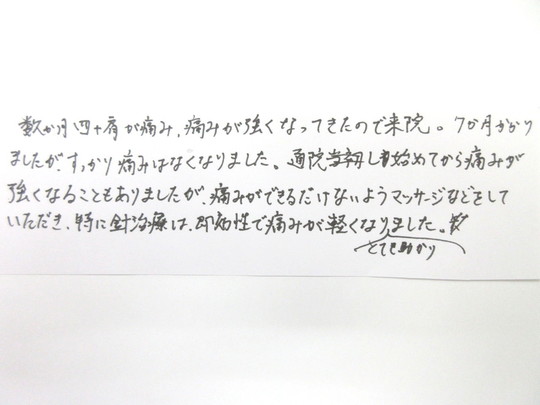 数か月四十肩が痛み、痛みが強くなってきたので来院。7か月かかり
ましたが、すっかり痛みはなくなりました。通院当初し始めてから痛みが
強くなることもありましたが、痛みができるだけないようマッサージなどをして
いただき、特に針治療は、即効性で痛みが軽くなりました。
とても助かり